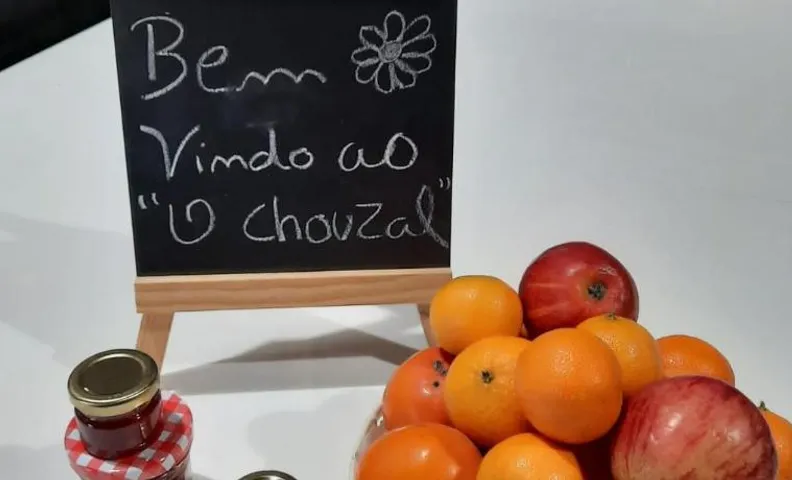 Bem
Vindo ao
"O Chouzal"